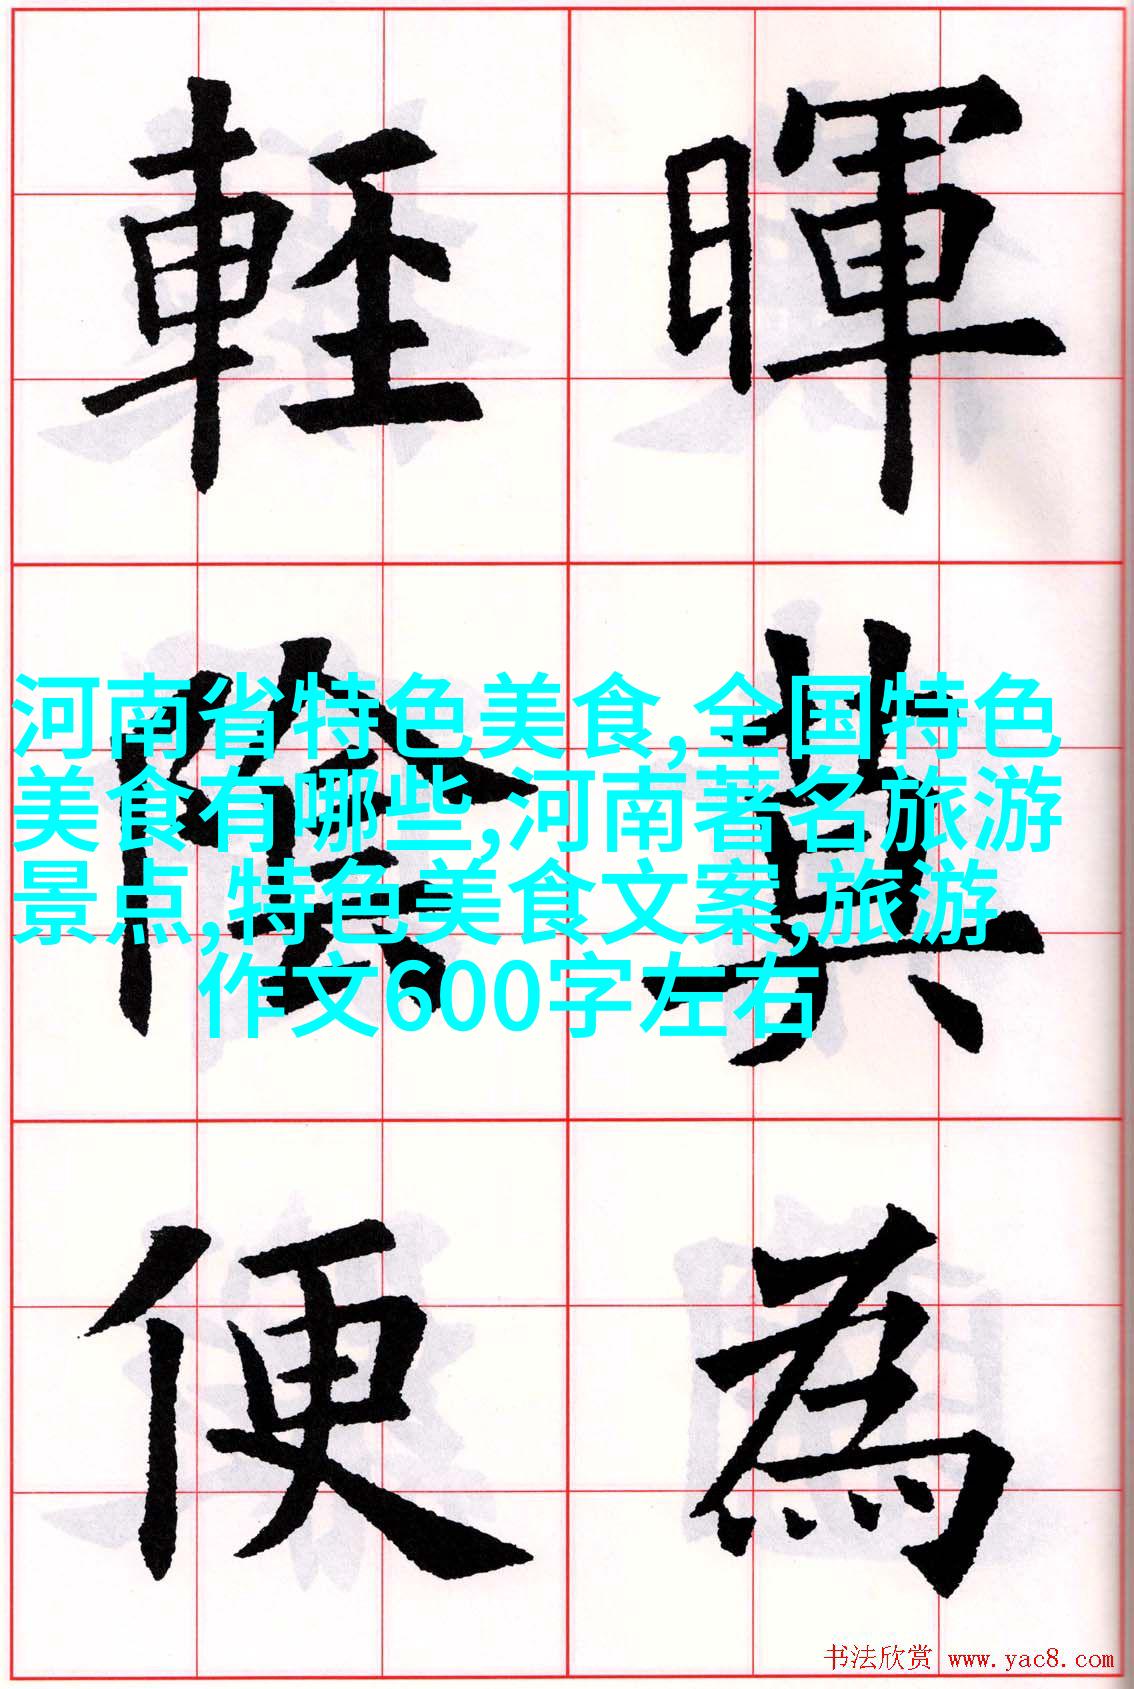 暉莫為
輕陰便
河南省特色美食,全国特色
美食有哪些,河南著名旅游
景点,特色美食文案,旅游
作文600字左右
书法欣赏 www.yac8.com